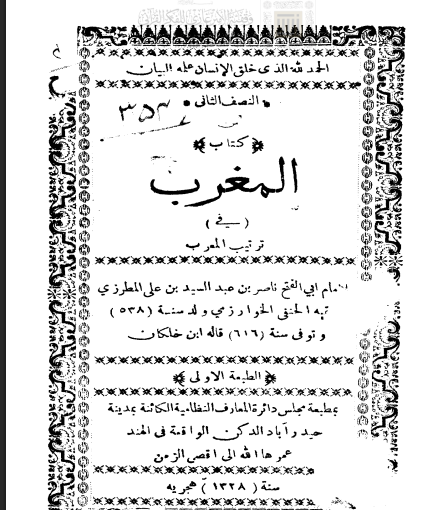 الحمد لله الذى خلق الإنسان علمه البيان
النصف الثانى
من
٣٥٤
كتاب
المغرب
( فى )
ترتيب المعرب
ابى الفتح ناصر بن عبد السيد بن على المطرزي
الحنفى الخوارزمي ولد سنة (٥٣٨)
وتوفى سنة (٦١٦) قاله ابن خلكان
الطبعة الاولى
بمطبعة مجلس دائرة المعارف النظامية الكائنة بمدينة
حيدر آباد الدكن الواقعة فى الهند
عمرها الله الى اقصى الزمن
سنة ( ١٣٢٨ ) هجريه